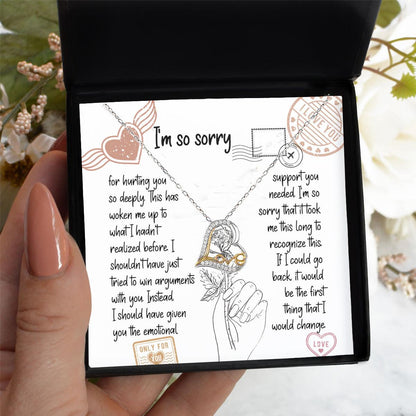 I'm so sorry
I LOVE YOU
for hurting you
so deeply. This has
woken me up to
what I hadn't
realized before. I
shouldn't have just
tried to win arguments
with you. Instead,
I should have given
you the emotional
support you
needed. I'm so
sorry that it took
me this long to
recognize this.
If I could go
back, it would
be the first
thing that I
would change.
ONLY FOR
YOU
LOVE